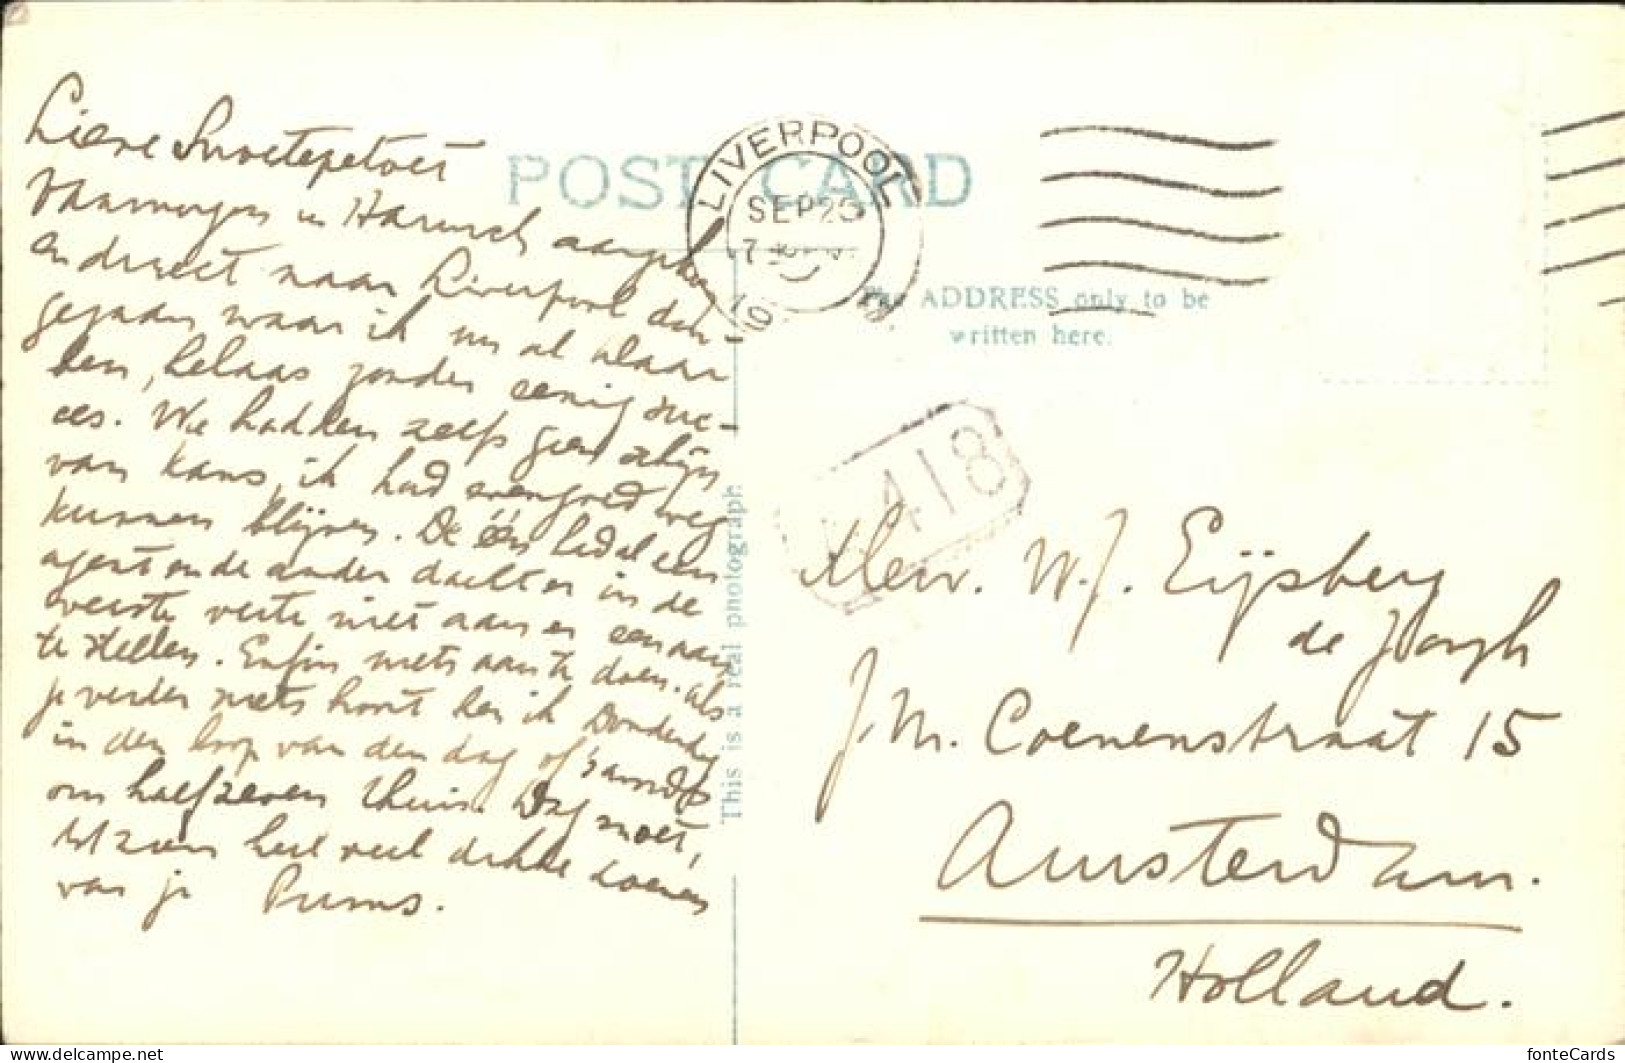 Lieve Snoetepetoet
Vanmorgen in Harwich aangekomen
en direct naar Liverpool door-
gegaan waar ik nu al klaar
ben, helaas zonder eenig suc-
ces. We hadden zelfs geen schijn
van kans, ik had evengoed weg
kunnen blijven. De één had al een
agent en de ander dacht er in de
verste verte niet aan er een aan
te stellen. Enfin niets aan te doen. Als
je verder niets hoort ben ik Donderdag
in den loop van den dag of 's avonds
om half zeven thuis. Dag moet,
tot ziens heel veel dikke zoenen
van je Pums.
POST CARD
LIVERPOOL
SEP 25
The ADDRESS only to be
written here.
418
This is a real photograph
Mevr. W. J. Eijsberg
de Jongh
J. M. Coenenstraat 15
Amsterdam.
Holland.
delcampe.net
fonteCards